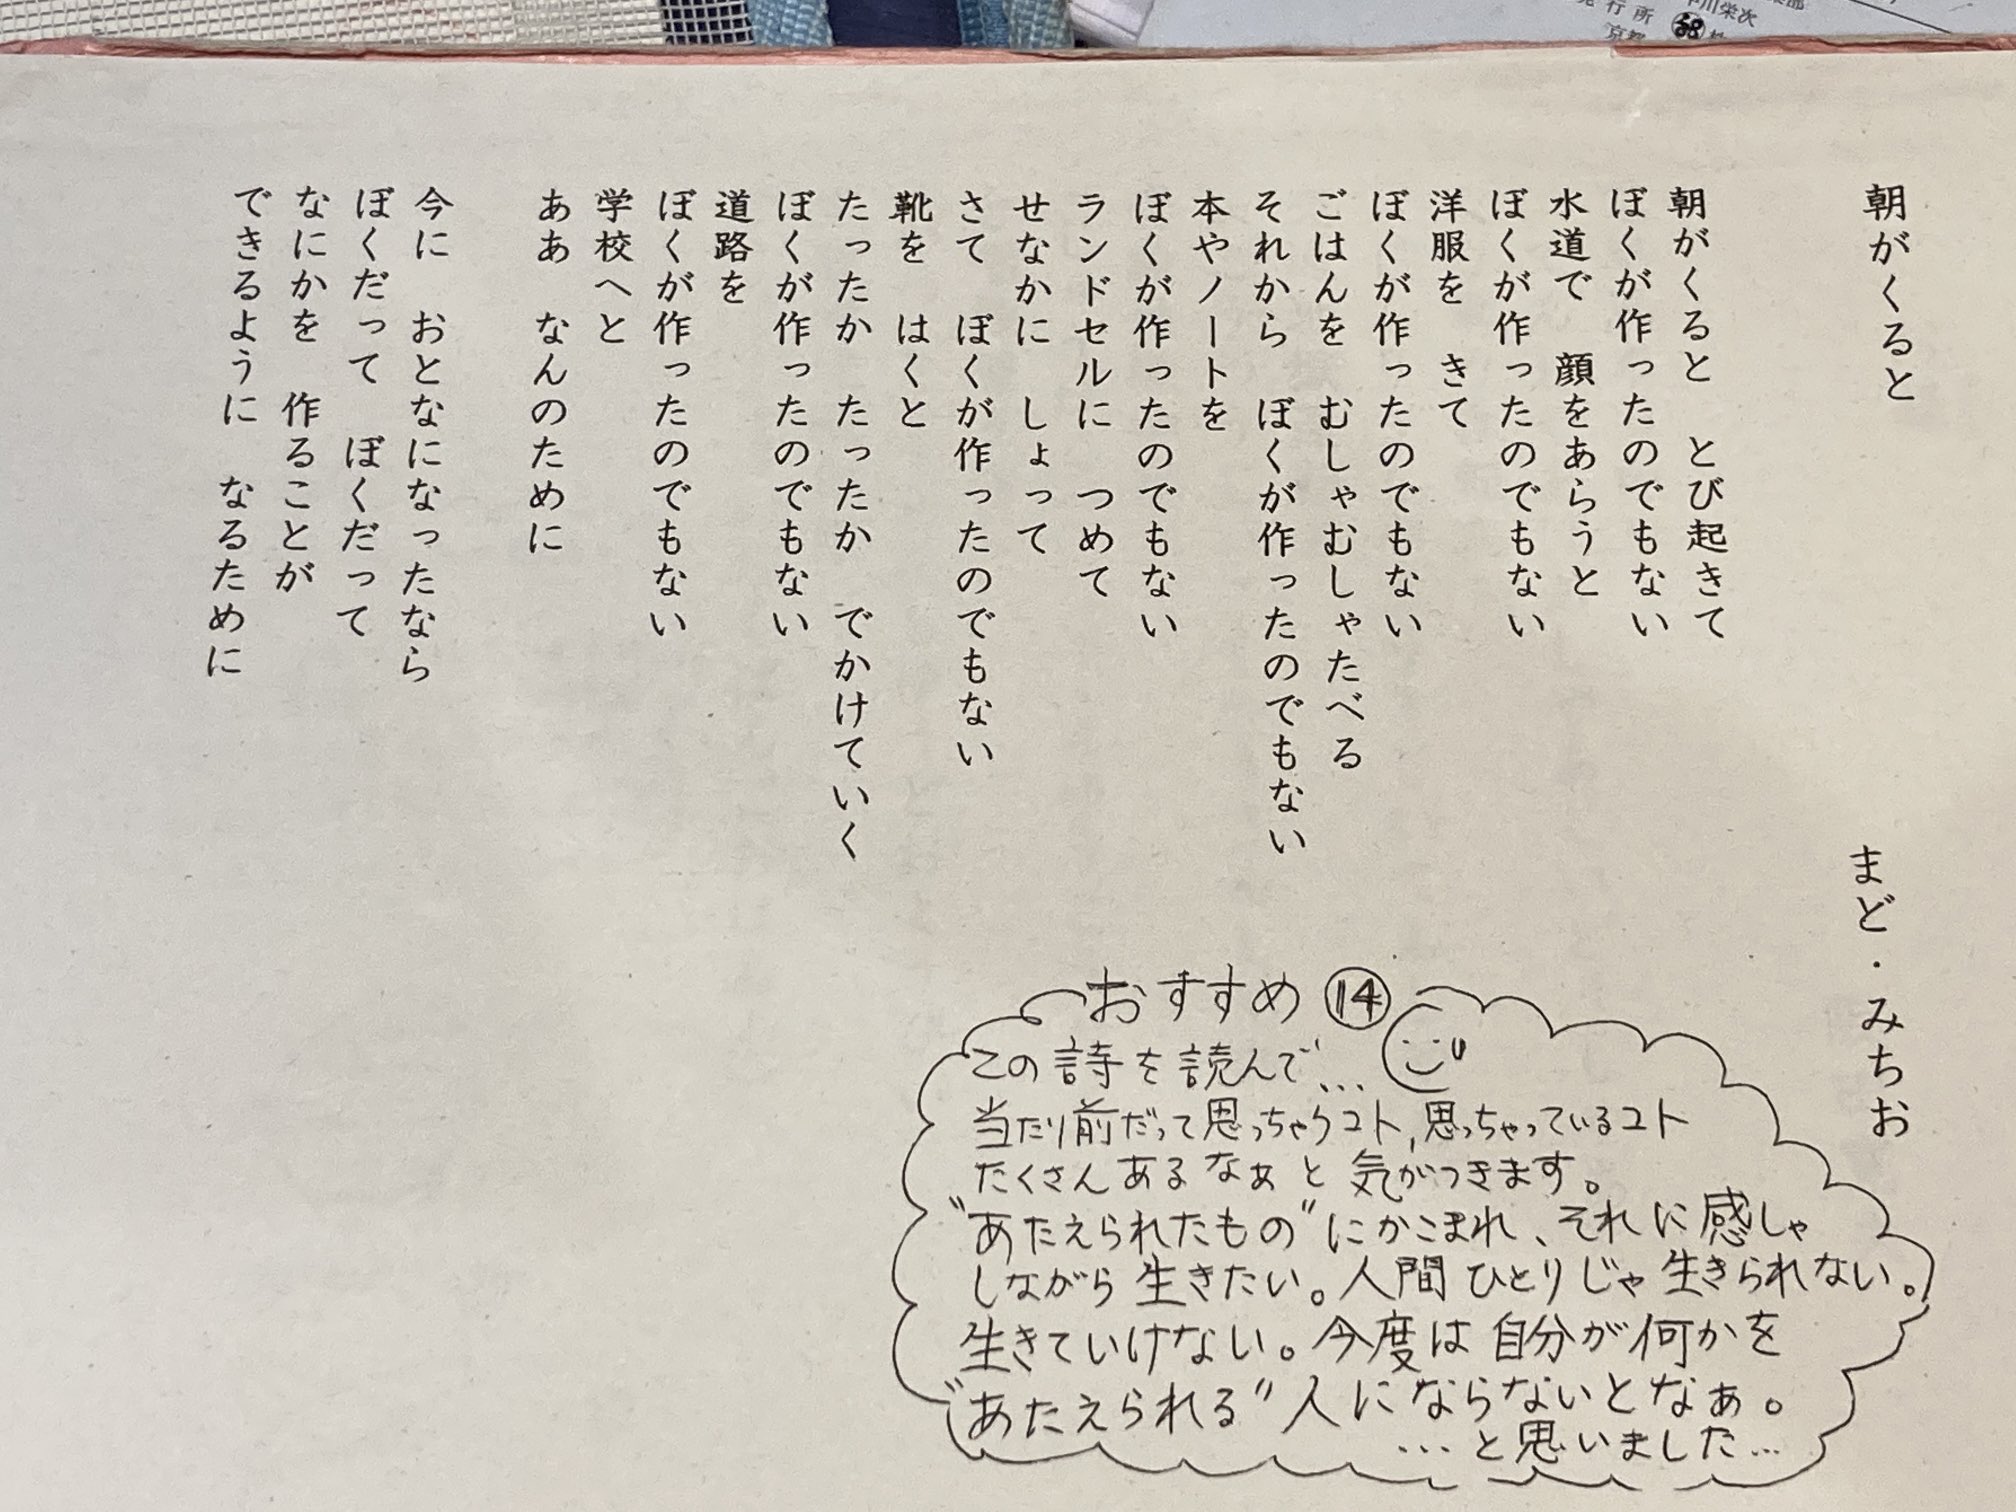 朝がくると
まど・みちお
朝がくると　とび起きて
ぼくが作ったのでもない
水道で　顔をあらうと
ぼくが作ったのでもない
洋服を　きて
ぼくが作ったのでもない
ごはんを　むしゃむしゃたべる
それから　ぼくが作ったのでもない
本やノートを
ぼくが作ったのでもない
ランドセルに　つめて
せなかに　しょって
さて　ぼくが作ったのでもない
靴を　はくと
たったか　たったか　でかけていく
ぼくが作ったのでもない
道路を
ぼくが作ったのでもない
学校へと
ああ　なんのために
今に　おとなになったなら
ぼくだって　ぼくだって
なにかを　作ることが
できるように　なるために
おすすめ ⑭
この詩を読んで...
当たり前だって思っちゃうコト,思っちゃっているコト
たくさんあるなぁと気がつきます。
"あたえられたもの"にかこまれ、それに感しゃ
しながら生きたい。人間ひとりじゃ生きられない。
生きていけない。今度は自分が何かを
"あたえられる"人にならないとなぁ。
...と思いました...
行所
川栄次